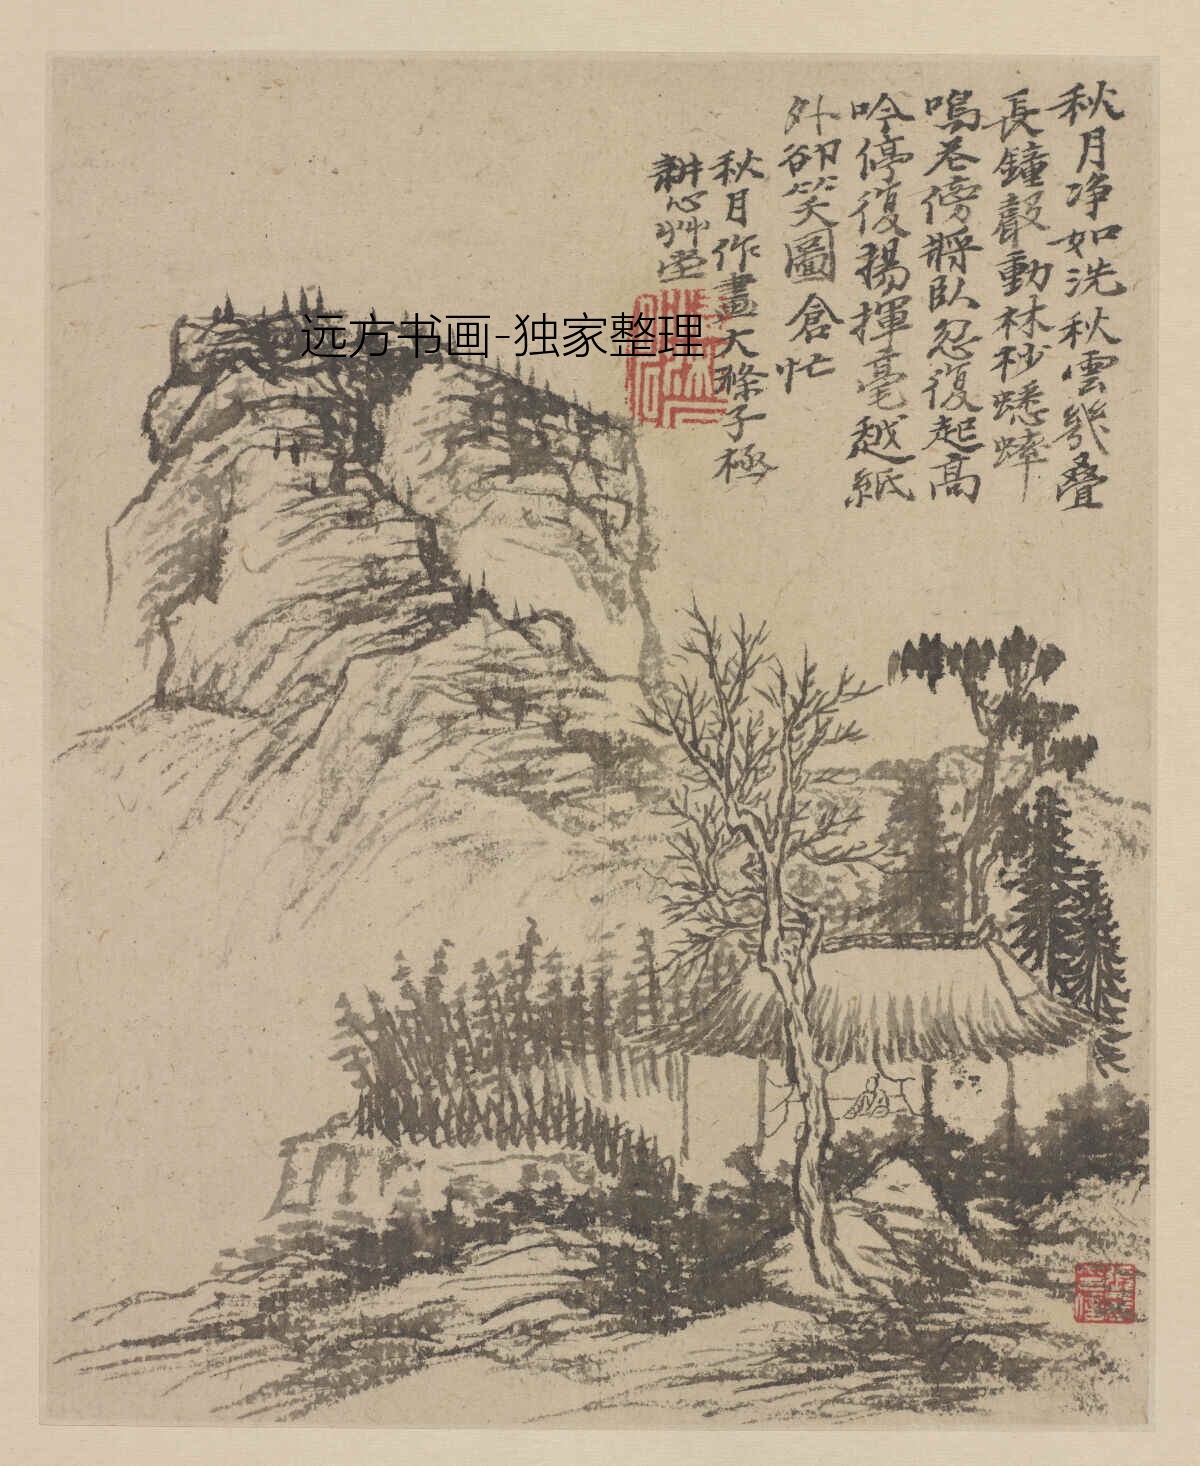 秋月净如洗秋雲幾叠
長鐘聲動林杪蟋蟀
鳴㞐傍將臥忽復起高
吟停復揚揮毫越紙
外卻笑圖倉忙
秋月作畫大滌子極
耕心艸堂
远方书画-独家整理